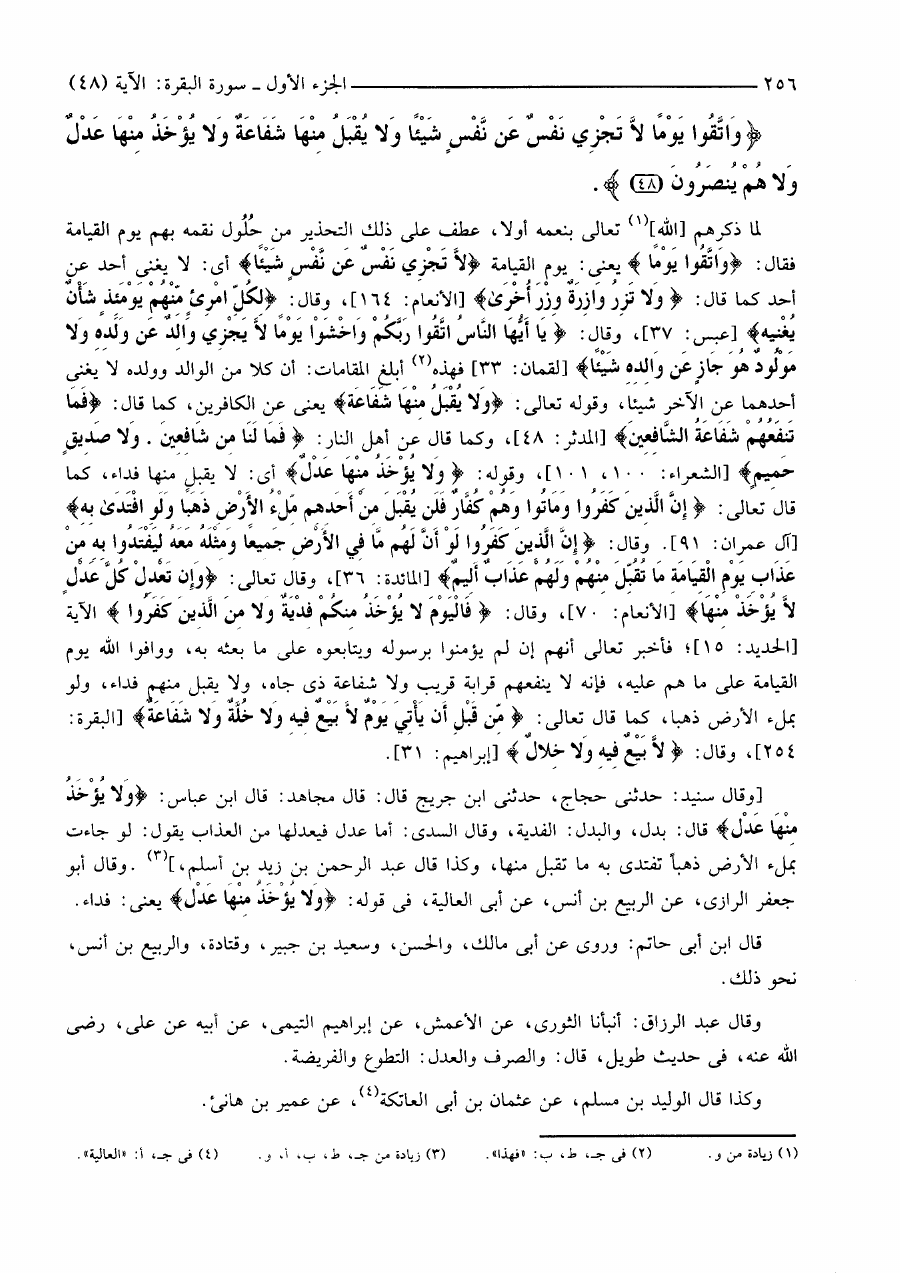 ٢٥٦ الجزء الأول ـ سورة البقرة: الآية (٤٨)
﴿ وَاتَّقُوا يَوْمًا لاَّ تَجْزِي نَفْسٌ عَن نَّفْسٍ شَيْئًا وَلا يُقْبَلُ مِنْهَا شَفَاعَةٌ وَلا يُؤْخَذُ مِنْهَا عَدْلٌ
وَلا هُمْ يُنصَرُونَ (٤٨) ﴾ .
لما ذكرهم [الله](١) تعالى بنعمه أولا، عطف على ذلك التحذير من حُلُول نقمه بهم يوم القيامة
فقال: ﴿وَاتَّقُوا يَوْمًا ﴾ يعنى: يوم القيامة ﴿لاَّ تَجْزِي نَفْسٌ عَن نَّفْسٍ شَيْئًا﴾ أى: لا يغنى أحد عن
أحد كما قال: ﴿ وَلا تَزِرُ وَازِرَةٌ وِزْرَ أُخْرَىٰ﴾ [الأنعام: ١٦٤]، وقال: ﴿لِكُلِّ امْرِئٍ مِّنْهُمْ يَوْمَئِذٍ شَأْنٌ
يُغْنِيهِ﴾ [عبس: ٣٧]، وقال: ﴿ يَا أَيُّهَا النَّاسُ اتَّقُوا رَبَّكُمْ وَاخْشَوْا يَوْمًا لاَّ يَجْزِي وَالِدٌ عَن وَلَدِهِ وَلا
مَوْلُودٌ هُوَ جَازٍ عَن وَالِدِهِ شَيْئًا﴾ [لقمان: ٣٣] فهذه(٢) أبلغ المقامات: أن كلا من الوالد وولده لا يغنى
أحدهما عن الآخر شيئا، وقوله تعالى: ﴿وَلا يُقْبَلُ مِنْهَا شَفَاعَةٌ﴾ يعنى عن الكافرين، كما قال: ﴿فَمَا
تَنفَعُهُمْ شَفَاعَةُ الشَّافِعِينَ﴾ [المدثر: ٤٨]، وكما قال عن أهل النار: ﴿ فَمَا لَنَا مِن شَافِعِينَ . وَلا صَدِيقٍ
حَمِيمٍ﴾ [الشعراء: ١٠٠، ١٠١]، وقوله: ﴿ وَلا يُؤْخَذُ مِنْهَا عَدْلٌ﴾ أى: لا يقبل منها فداء، كما
قال تعالى: ﴿ إِنَّ الَّذِينَ كَفَرُوا وَمَاتُوا وَهُمْ كُفَّارٌ فَلَن يُقْبَلَ مِنْ أَحَدِهِم مِّلْءُ الأَرْضِ ذَهَبًا وَلَوِ افْتَدَىٰ بِهِ﴾
[آل عمران: ٩١]. وقال: ﴿ إِنَّ الَّذِينَ كَفَرُوا لَوْ أَنَّ لَهُم مَّا فِي الأَرْضِ جَمِيعًا وَمِثْلَهُ مَعَهُ لِيَفْتَدُوا بِهِ مِنْ
عَذَابِ يَوْمِ الْقِيَامَةِ مَا تُقُبِّلَ مِنْهُمْ وَلَهُمْ عَذَابٌ أَلِيمٌ﴾ [المائدة: ٣٦]، وقال تعالى: ﴿وَإِن تَعْدِلْ كُلَّ عَدْلٍ
لاَّ يُؤْخَذْ مِنْهَا﴾ [الأنعام: ٧٠]، وقال: ﴿ فَالْيَوْمَ لا يُؤْخَذُ مِنكُمْ فِدْيَةٌ وَلا مِنَ الَّذِينَ كَفَرُوا ﴾ الآية
[الحديد: ١٥]؛ فأخبر تعالى أنهم إن لم يؤمنوا برسوله ويتابعوه على ما بعثه به، ووافوا الله يوم
القيامة على ما هم عليه، فإنه لا ينفعهم قرابة قريب ولا شفاعة ذى جاه، ولا يقبل منهم فداء، ولو
بملء الأرض ذهبا، كما قال تعالى: ﴿ مِّن قَبْلِ أَن يَأْتِيَ يَوْمٌ لاَّ بَيْعٌ فِيهِ وَلا خُلَّةٌ وَلا شَفَاعَةٌ﴾ [البقرة:
٢٥٤]، وقال: ﴿ لاَّ بَيْعٌ فِيهِ وَلا خِلالٌ ﴾ [إبراهيم: ٣١].
[وقال سنيد: حدثنى حجاج، حدثنى ابن جريج قال: قال مجاهد: قال ابن عباس: ﴿وَلا يُؤْخَذُ
مِنْهَا عَدْل﴾ قال: بدل، والبدل: الفدية، وقال السدى: أما عدل فيعدلها من العذاب يقول: لو جاءت
بملء الأرض ذهباً تفتدى به ما تقبل منها، وكذا قال عبد الرحمن بن زيد بن أسلم،](٣) .وقال أبو
جعفر الرازى، عن الربيع بن أنس، عن أبى العالية، فى قوله: ﴿وَلا يُؤْخَذُ مِنْهَا عَدْل﴾ يعنى: فداء.
قال ابن أبى حاتم: وروى عن أبى مالك، والحسن، وسعيد بن جبير، وقتادة، والربيع بن أنس،
نحو ذلك.
وقال عبد الرزاق: أنبأنا الثورى، عن الأعمش، عن إبراهيم التيمى، عن أبيه عن على، رضى
الله عنه، فى حديث طويل، قال: والصرف والعدل: التطوع والفريضة.
وكذا قال الوليد بن مسلم، عن عثمان بن أبى العاتكة(٤)، عن عمير بن هانئ.
(١) زيادة من و. (٢) فى جـ، ط، ب: «فهذا». (٣) زيادة من جـ، ط، ب، أ، و. (٤) فى جـ، أ: «العالية».